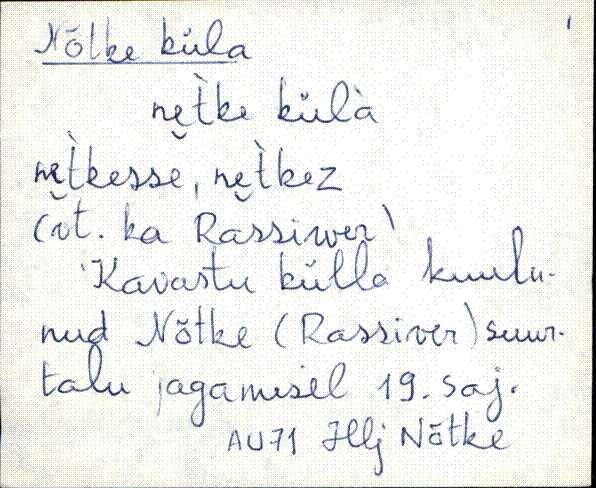 Nõtke küla
ne̮t̀ke külà
ne̮t̀kesse, ne̮t̀kez
(vt. ka Rassiwer)
Kavastu külla kuulu-
nud Nõtke (Rassiver) suur-
talu jagamisel 19. saj.
AU71 Hlj Nõtke